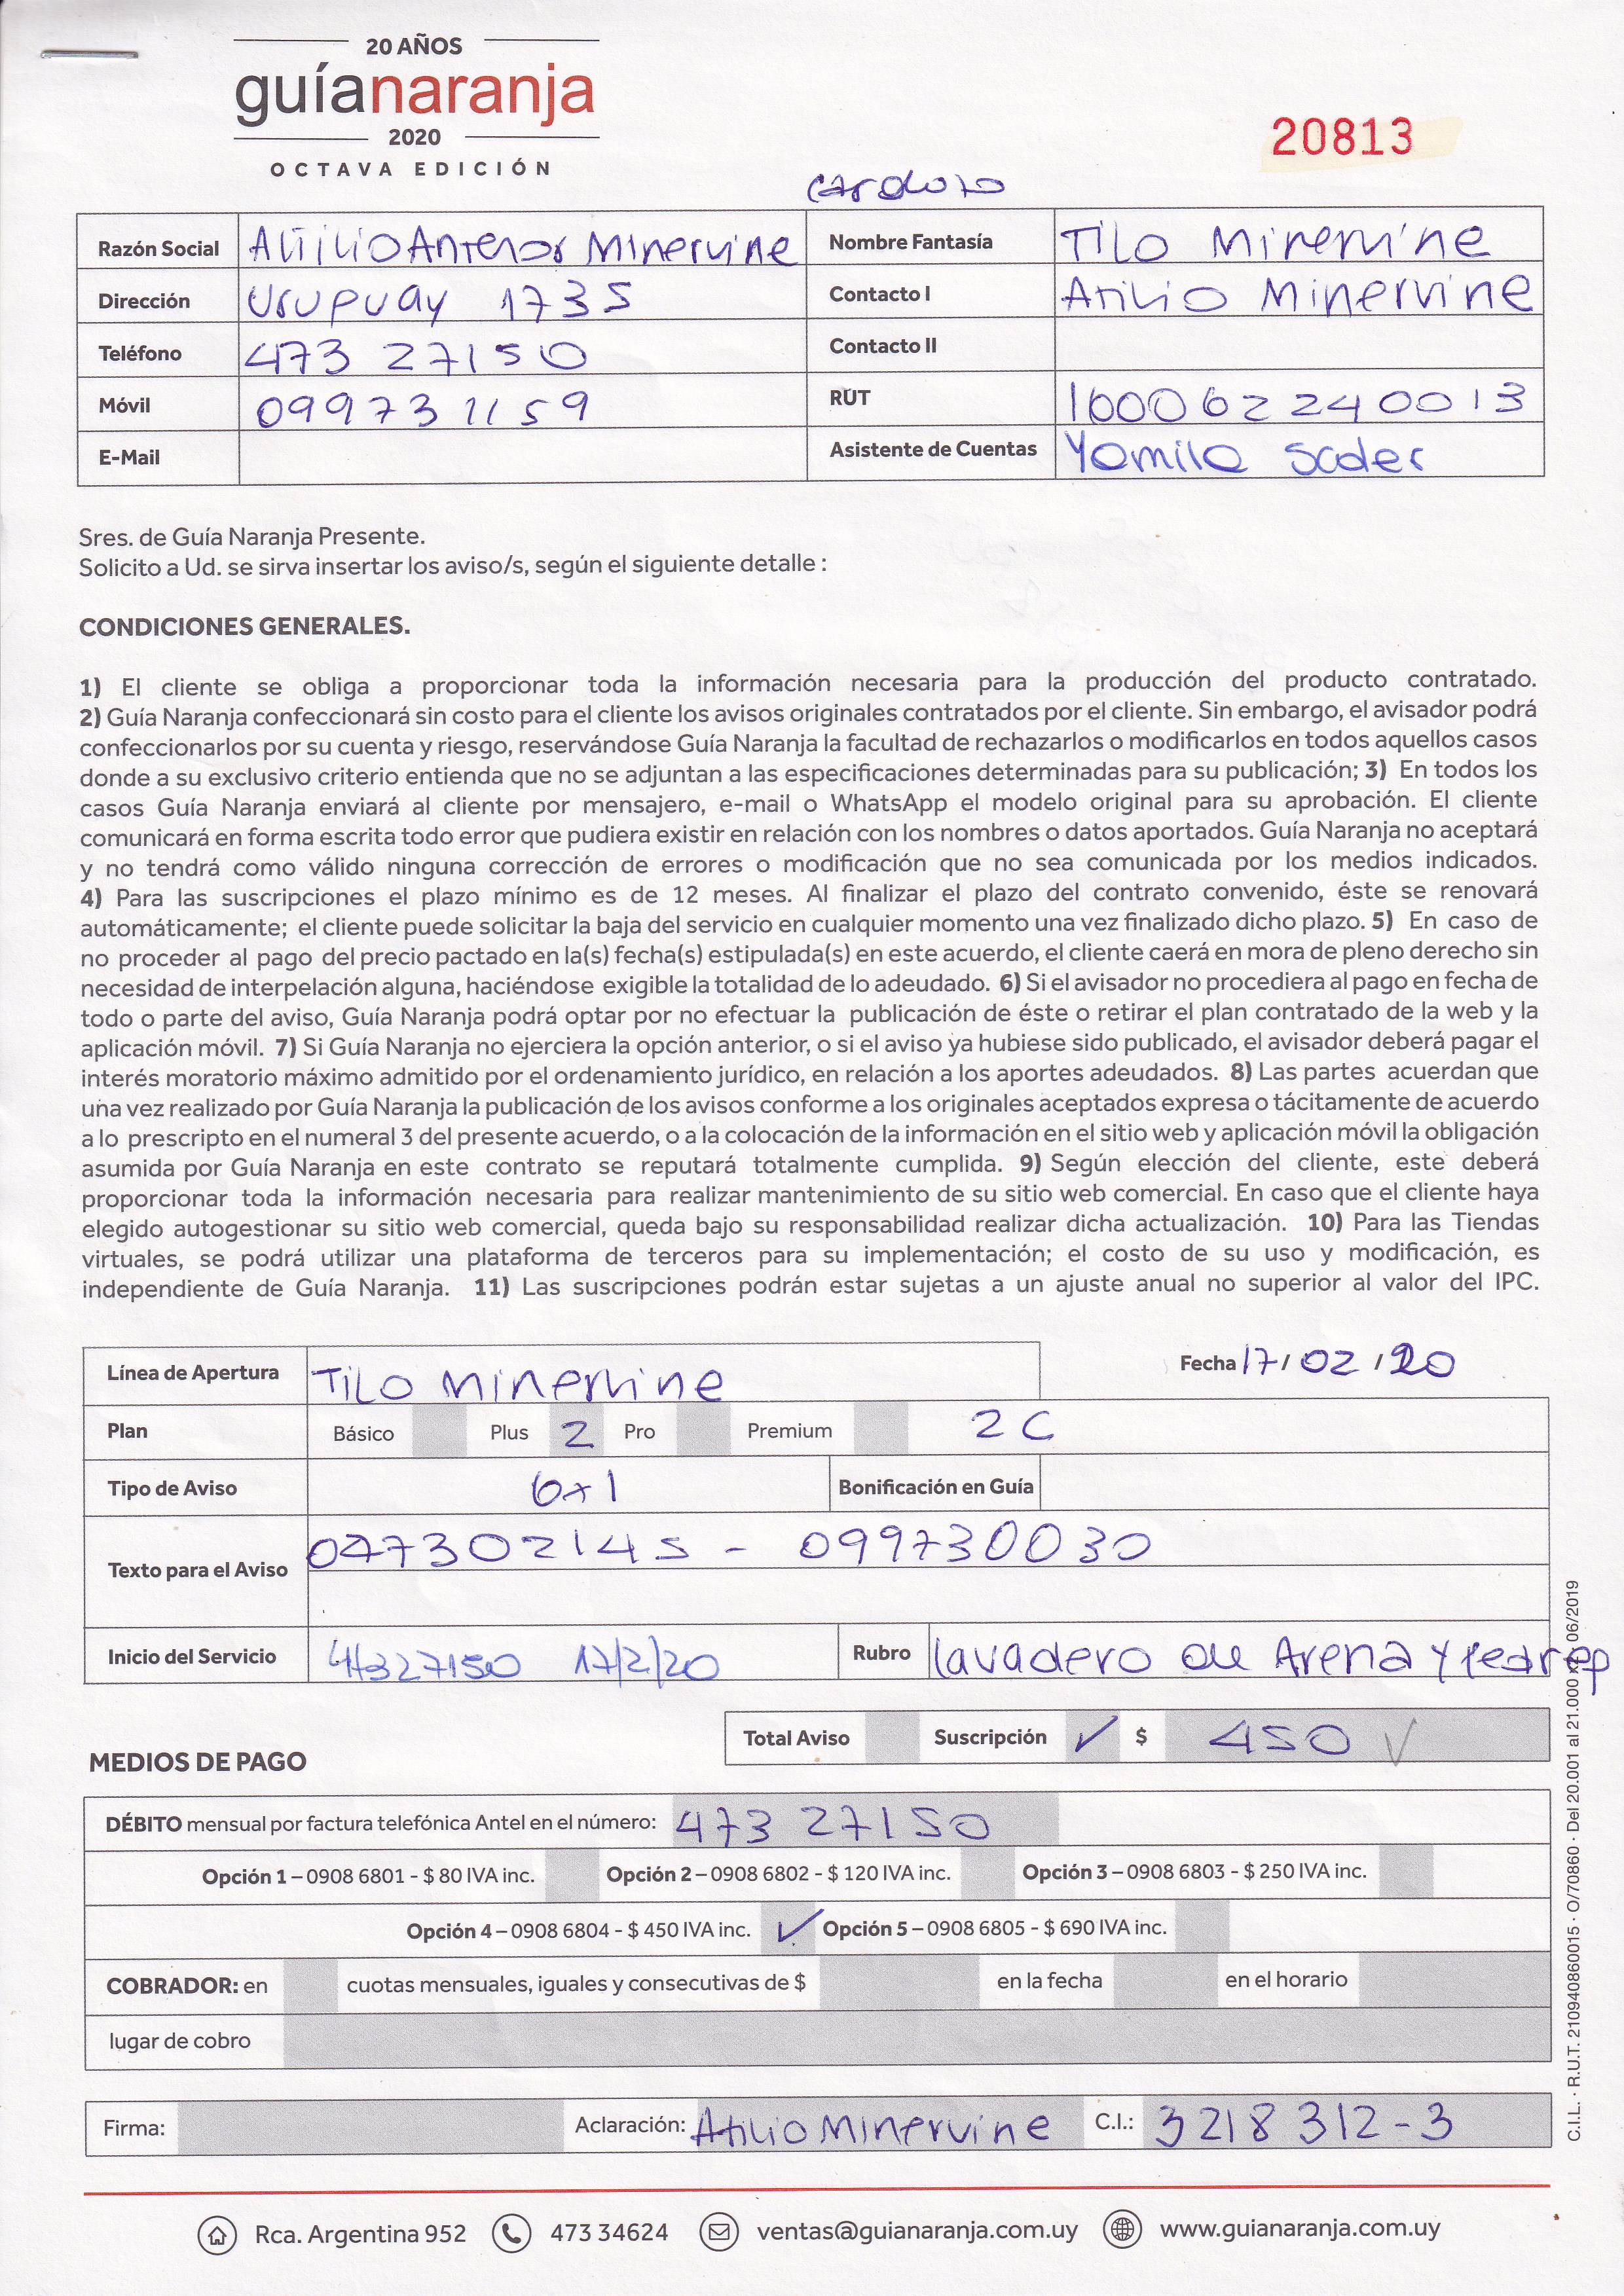 20 AÑOS
guíanaranja
2020
OCTAVA EDICIÓN
20813
Cardozo
Razón Social Atilio Antenor Minervine Nombre Fantasía Tilo Minervine
Dirección Uruguay 1735 Contacto I Atilio Minervine
Teléfono 473 27150 Contacto II
Móvil 099731159 RUT 160006224 0013
E-Mail Asistente de Cuentas Yamila Soder
Sres. de Guía Naranja Presente.
Solicito a Ud. se sirva insertar los aviso/s, según el siguiente detalle :
CONDICIONES GENERALES.
1) El cliente se obliga a proporcionar toda la información necesaria para la producción del producto contratado.
2) Guía Naranja confeccionará sin costo para el cliente los avisos originales contratados por el cliente. Sin embargo, el avisador podrá
confeccionarlos por su cuenta y riesgo, reservándose Guía Naranja la facultad de rechazarlos o modificarlos en todos aquellos casos
donde a su exclusivo criterio entienda que no se adjuntan a las especificaciones determinadas para su publicación; 3) En todos los
casos Guía Naranja enviará al cliente por mensajero, e-mail o WhatsApp el modelo original para su aprobación. El cliente
comunicará en forma escrita todo error que pudiera existir en relación con los nombres o datos aportados. Guía Naranja no aceptará
y no tendrá como válido ninguna corrección de errores o modificación que no sea comunicada por los medios indicados.
4) Para las suscripciones el plazo mínimo es de 12 meses. Al finalizar el plazo del contrato convenido, éste se renovará
automáticamente; el cliente puede solicitar la baja del servicio en cualquier momento una vez finalizado dicho plazo. 5) En caso de
no proceder al pago del precio pactado en la(s) fecha(s) estipulada(s) en este acuerdo, el cliente caerá en mora de pleno derecho sin
necesidad de interpelación alguna, haciéndose exigible la totalidad de lo adeudado. 6) Si el avisador no procediera al pago en fecha de
todo o parte del aviso, Guía Naranja podrá optar por no efectuar la publicación de éste o retirar el plan contratado de la web y la
aplicación móvil. 7) Si Guía Naranja no ejerciera la opción anterior, o si el aviso ya hubiese sido publicado, el avisador deberá pagar el
interés moratorio máximo admitido por el ordenamiento jurídico, en relación a los aportes adeudados. 8) Las partes acuerdan que
una vez realizado por Guía Naranja la publicación de los avisos conforme a los originales aceptados expresa o tácitamente de acuerdo
a lo prescripto en el numeral 3 del presente acuerdo, o a la colocación de la información en el sitio web y aplicación móvil la obligación
asumida por Guía Naranja en este contrato se reputará totalmente cumplida. 9) Según elección del cliente, este deberá
proporcionar toda la información necesaria para realizar mantenimiento de su sitio web comercial. En caso que el cliente haya
elegido autogestionar su sitio web comercial, queda bajo su responsabilidad realizar dicha actualización. 10) Para las Tiendas
virtuales, se podrá utilizar una plataforma de terceros para su implementación; el costo de su uso y modificación, es
independiente de Guía Naranja. 11) Las suscripciones podrán estar sujetas a un ajuste anual no superior al valor del IPC.
Línea de Apertura Tilo Minervine Fecha 17/ 02 /20
Plan Básico Plus 2 Pro Premium 2 C
Tipo de Aviso 6x1 Bonificación en Guía
Texto para el Aviso 047302145 - 099730030
Inicio del Servicio 47327150 17/2/20 Rubro lavadero de Arena y
Total Aviso Suscripción ✓ $ 450 ✓
MEDIOS DE PAGO
DÉBITO mensual por factura telefónica Antel en el número: 473 27150
Opción 1 – 0908 6801 - $ 80 IVA inc. Opción 2 – 0908 6802 - $ 120 IVA inc. Opción 3 – 0908 6803 - $ 250 IVA inc.
Opción 4 – 0908 6804 - $ 450 IVA inc. ✓ Opción 5 – 0908 6805 - $ 690 IVA inc.
COBRADOR: en cuotas mensuales, iguales y consecutivas de $ en la fecha en el horario
lugar de cobro
Firma: Aclaración: Atilio Minervine C.I.: 3218312-3
Rca. Argentina 952 473 34624 ventas@guianaranja.com.uy www.guianaranja.com.uy
C.I.L. · R.U.T. 210940860015 · O/70860 · Del 20.001 al 21.000 06/2019